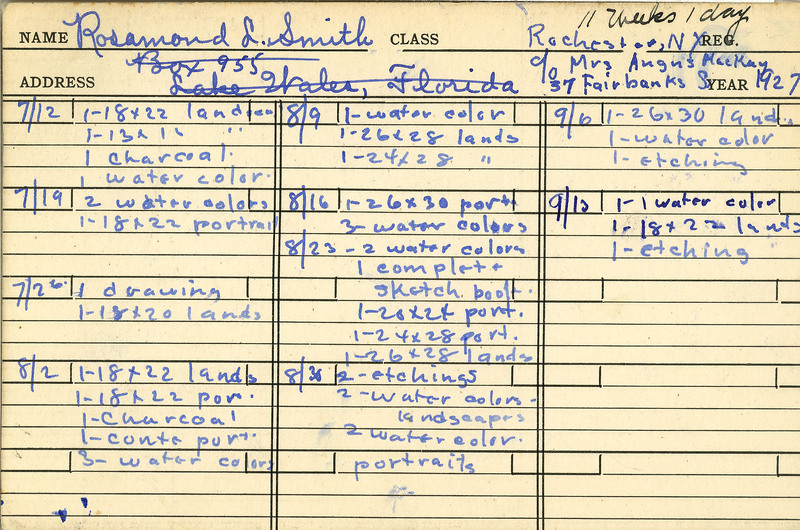 11 weeks 1 day
NAME Rosamond L. Smith CLASS Rochester, NY REG.
Box 955 c/o Mrs Angus MacKay
ADDRESS Lake Wales, Florida 37 Fairbanks S YEAR 1927
7/12 1-18x22 land
1-13x1 "
1 charcoal.
1 water color.
7/19 2 water colors
1-18x22 portrait
7/26 1 drawing
1-18x20 lands
8/2 1-18x22 lands
1-18x22 por.
1-Charcoal
1-conte port.
3- water colors
8/9 1-water color
1-26x28 lands
1-24x28 "
8/16 1-26x30 port
3-water colors
8/23 - 2 water colors
1 complete
sketch book.
1-20x24 port.
1-24x28 port.
1-26x28 lands
8/30 2-etchings
2-water colors-
landscapes
2 water color.
portraits
9/6 1-26x30 land.
1-water color
1-etching
9/13 1-1 water color
1-18x22 lands
1-etching